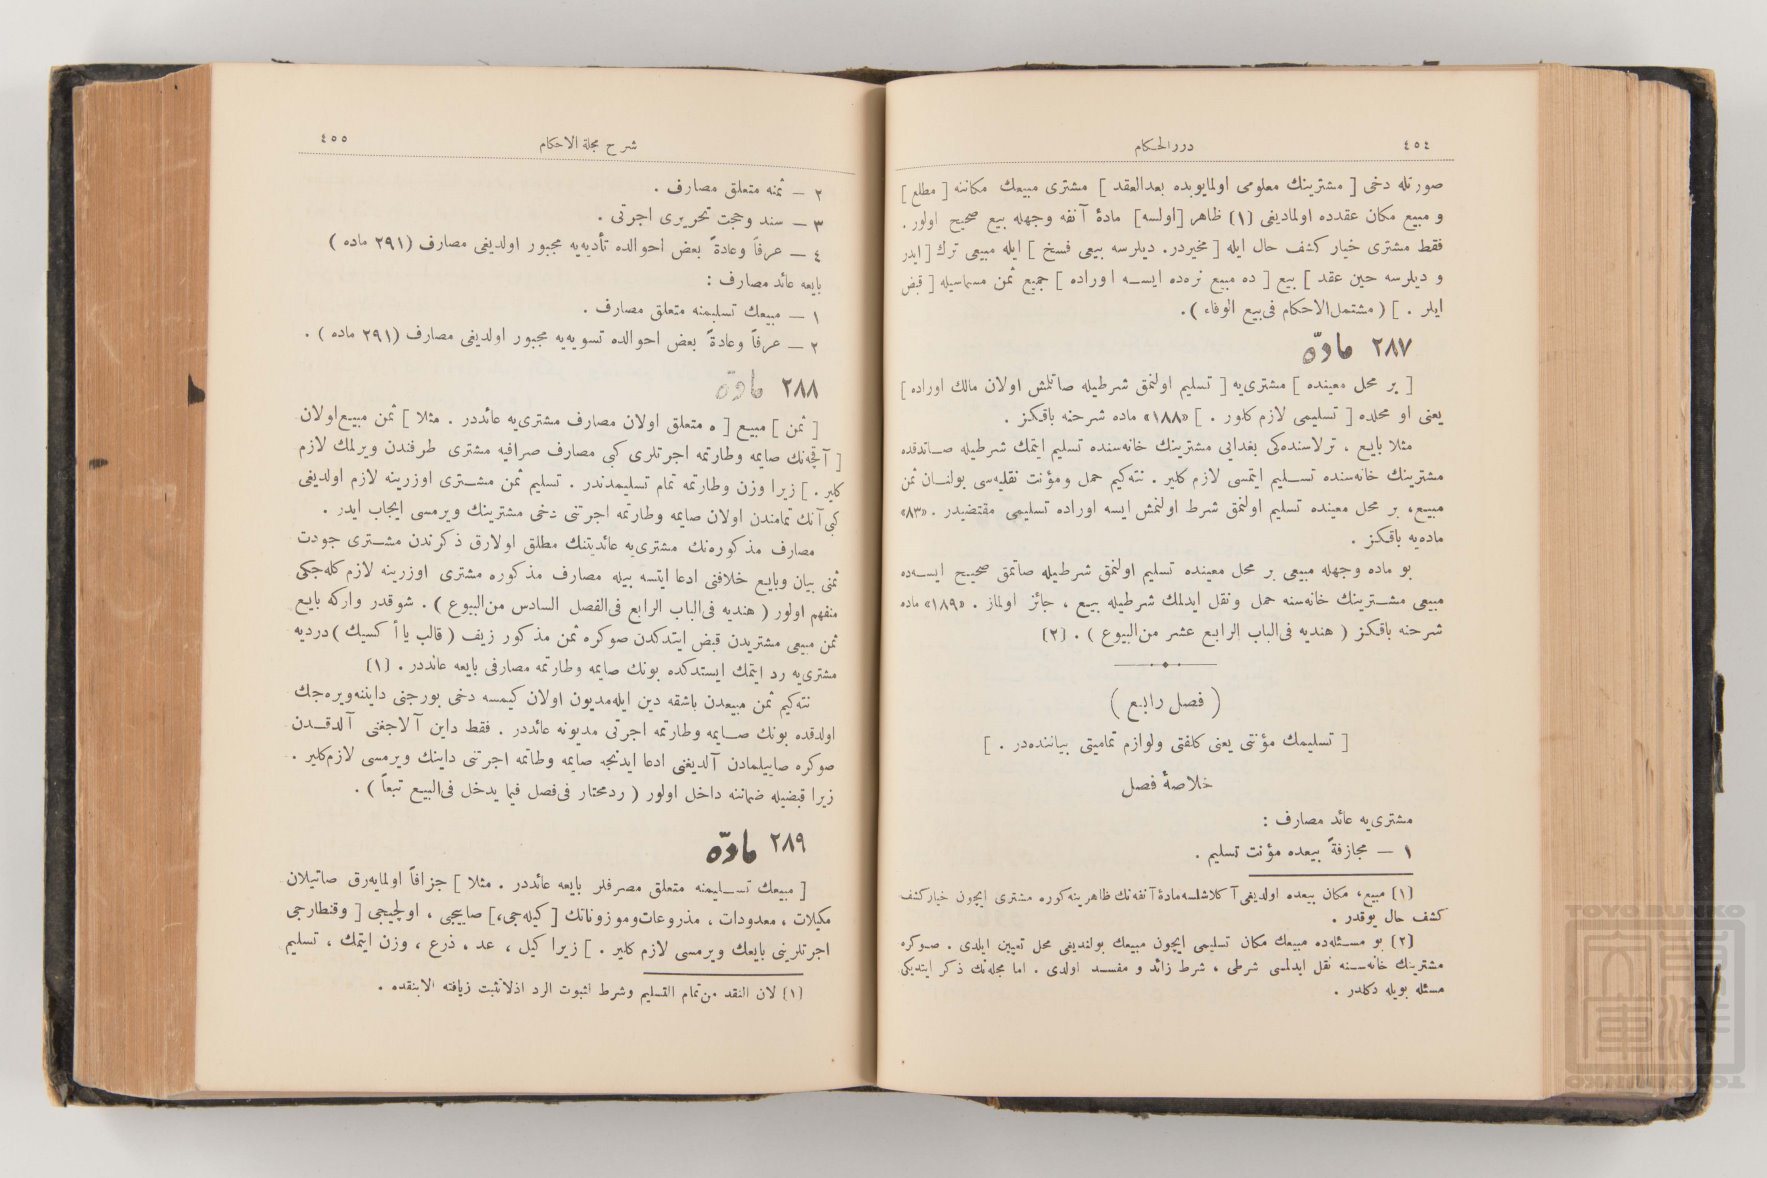 ٤٥٤
دررالحكام
صورتله دخى [ مشترينك معلومى اولمايوبده بعدالعقد ] مشترى مبيعك مكاننه [ مطلع ]
و مبيع مكان عقدده اولماديغى (١) ظاهر [اولسه] مادۀ آنفه وجهله بيع صحيح اولور .
فقط مشترى خيار كشف حال ايله [ مخيردر. ديلرسه بيعى فسخ ] ايله مبيعى ترك [ ايدر
و ديلرسه حين عقد ] بيع [ ده مبيع نرەده ايسه اوراده ] جميع ثمن مسماسيله [ قبض
ايلر . ] ( مشتمل‌الاحكام فى‌بيع الوفاء ).
٢٨٧ مادّه
[ بر محل معينده ] مشترى‌يه [ تسليم اولنمق شرطيله صاتلمش اولان مالك اوراده ]
يعنى او محلده [ تسليمى لازم كلور . ] «١٨٨» ماده شرحنه باقكز .
مثلا بايع ، ترلاسنده‌كى بغدايى مشترينك خانه‌سنده تسليم ايتمك شرطيله صاتدقده
مشترينك خانه‌سنده تسليم ايتمسى لازم كلير . نته‌كيم حمل ومؤنت نقليه‌سى بولنان ثمن
مبيع، بر محل معينده تسليم اولنمق شرط اولنمش ايسه اوراده تسليمى مقتضيدر . «٨٣»
ماده‌يه باقكز .
بو ماده وجهله مبيعى بر محل معينده تسليم اولنمق شرطيله صاتمق صحيح ايسه‌ده
مبيعى مشترينك خانه‌سنه حمل ونقل ايدلمك شرطيله بيع ، جائز اولماز . «١٨٩» ماده
شرحنه باقكز ( هنديه فى‌الباب الرابع عشر من‌البيوع ) . (٢)
( فصل رابع )
[ تسليمك مؤنتى يعنى كلفتى ولوازم تماميتى بياننده‌در . ]
خلاصۀ فصل
مشترى‌يه عائد مصارف :
١ — مجازفةً بيعده مؤنت تسليم .
(١) مبيع، مكان بيعده اولديغى آكلاشلسه مادۀ آنفه‌نك ظاهرينه كوره مشترى ايچون خياركشف
كشف حال يوقدر .
(٢) بو مسئله‌ده مبيعك مكان تسليمى ايچون مبيعك بولنديغى محل تعيين ايلدى . صوكره
مشترينك خانه‌سنه نقل ايدلمسى شرطى ، شرط زائد و مفسد اولدى . اما مجله‌نك ذكر ايتديكى
مسئله بويله دكلدر .
شرح مجلة الاحكام
٤٥٥
٢ — ثمنه متعلق مصارف .
٣ — سند وحجت تحريرى اجرتى .
٤ — عرفاً وعادةً بعض احوالده تأديه‌يه مجبور اولديغى مصارف (٢٩١ ماده )
بايعه عائد مصارف :
١ — مبيعك تسليمنه متعلق مصارف .
٢ — عرفاً وعادةً بعض احوالده تسويه‌يه مجبور اولديغى مصارف (٢٩١ ماده ) .
٢٨٨ مادّه
[ ثمن ] مبيع [ ه متعلق اولان مصارف مشترى‌يه عائددر . مثلا ] ثمن مبيع‌اولان
[ آقچه‌نك صايمه وطارتمه اجرتلرى كبى مصارف صرافيه مشترى طرفندن ويرلمك لازم
كلير . ] زيرا وزن وطارتمه تمام تسليمدندر . تسليم ثمن مشترى اوزرينه لازم اولديغى
كبى آنك تمامندن اولان صايمه وطارتمه اجرتنى دخى مشترينك ويرمسى ايجاب ايدر .
مصارف مذكوره‌نك مشترى‌يه عائديتنك مطلق اولارق ذكرندن مشترى جودت
ثمنى بيان وبايع خلافنى ادعا ايتسه بيله مصارف مذكوره مشترى اوزرينه لازم كله‌جكى
منفهم اولور ( هنديه فى‌الباب الرابع فى‌الفصل السادس من‌البيوع ) . شوقدر واركه بايع
ثمن مبيعى مشتريدن قبض ايتدكدن صوكره ثمن مذكور زيف ( قالب يا أكسيك ) درديه
مشترى‌يه رد ايتمك ايستدكده بونك صايمه وطارتمه مصارفى بايعه عائددر . (١)
نته‌كيم ثمن مبيعدن باشقه دين ايله‌مديون اولان كيمسه دخى بورجنى داينه‌ويره‌جك
اولدقده بونك صايمه وطارتمه اجرتى مديونه عائددر . فقط داين آلاجغنى آلدقدن
صوكره صاييلمادن آلديغنى ادعا ايدنجه صايمه وطاتمه اجرتنى داينك ويرمسى لازم‌كلير .
زيرا قبضيله ضماننه داخل اولور ( ردمحتار فى‌فصل فيما يدخل فى‌البيع تبعاً ) .
٢٨٩ مادّه
[ مبيعك تسليمنه متعلق مصرفلر بايعه عائددر . مثلا ] جزافاً اولمايه‌رق صاتيلان
مكيلات ، معدودات ، مذروعات‌وموزوناتك [ كيله‌جى،] صاييجى ، اولچيجى [ وقنطارجى
اجرتلرينى بايعك ويرمسى لازم كلير . ] زيرا كيل ، عد ، ذرع ، وزن ايتمك ، تسليم
(١) لان النقد من‌تمام التسليم وشرط لثبوت الرد اذلاتثبت زيافته الابنقده .
TOYO BUNKO